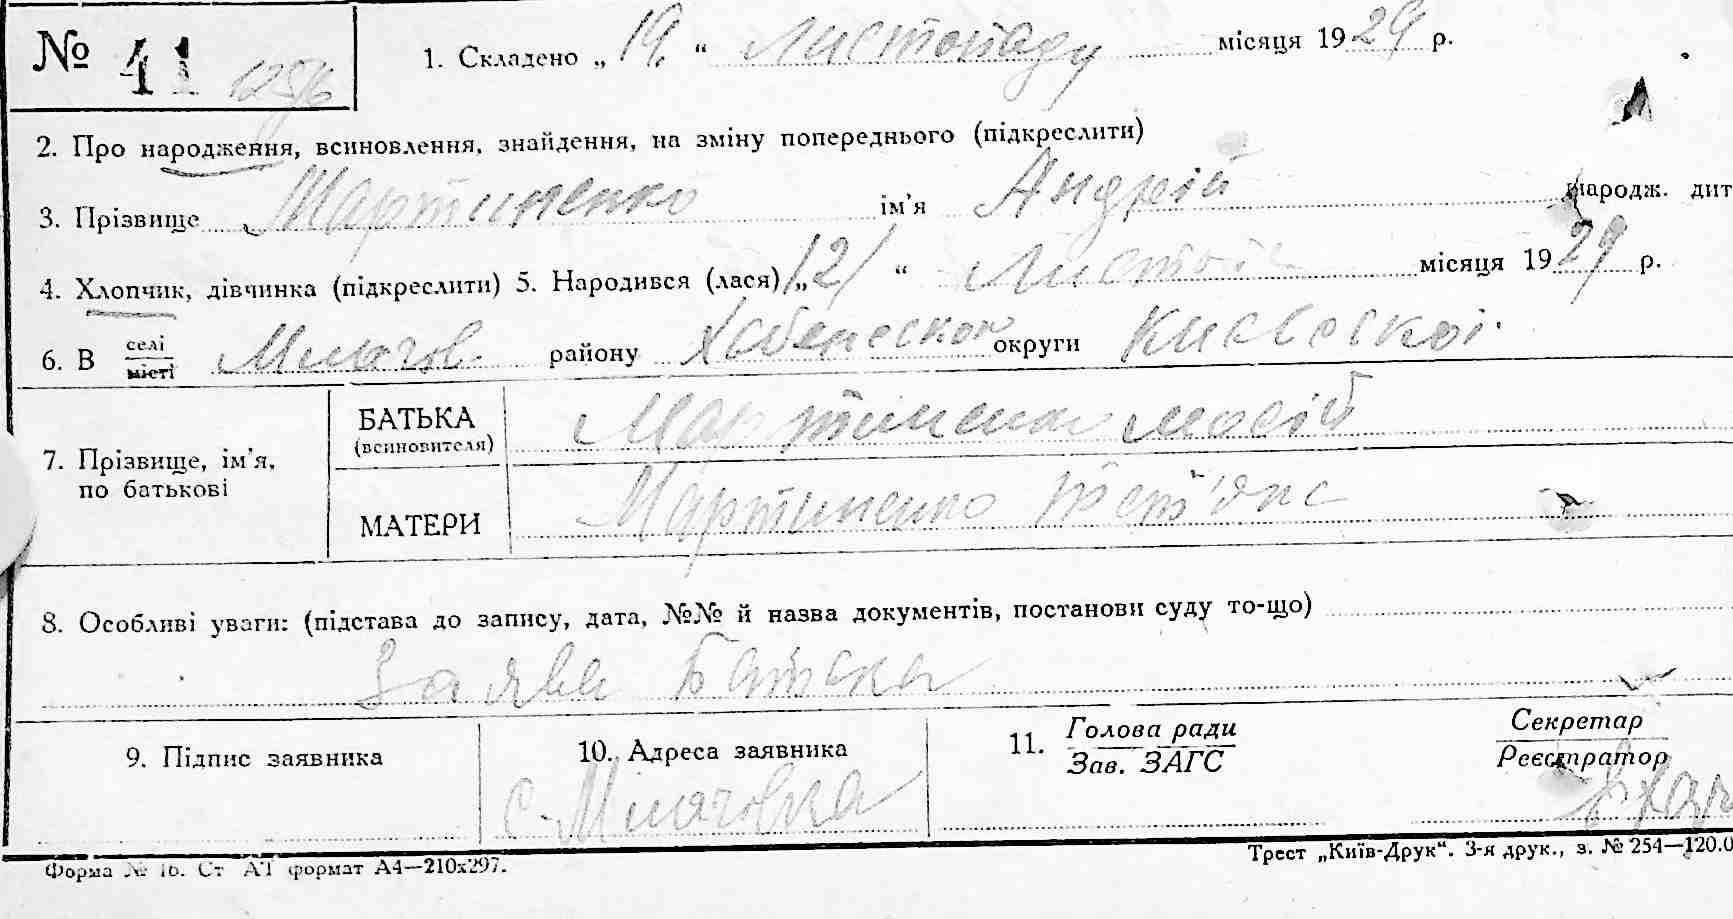 № 41
1. Складено „ 19. “ Листопаду місяця 1929 р.
2. Про народження, всиновлення, знайдення, на зміну попереднього (підкреслити)
3. Прізвище Мартиненко ім’я Андрій народж. дит
4. Хлопчик, дівчинка (підкреслити) 5. Народився (лася) „12/ “ Листоп місяця 1929 р.
6. В селі місті району округи Київської
7. Прізвище, ім’я, по батькові
БАТЬКА (всиновителя) Мартиненко Мосій
МАТЕРИ Мартиненко Тетяна
8. Особливі уваги: (підстава до запису, дата, №№ й назва документів, постанови суду то-що)
Заява Батька
9. Підпис заявника 10. Адреса заявника 11. Голова ради Секретар
Зав. ЗАГС Реєстратор
с.
Форма № 1б. Ст АТ формат А4—210x297.
Трест „Київ-Друк“. 3-я друк., з. № 254—120.0